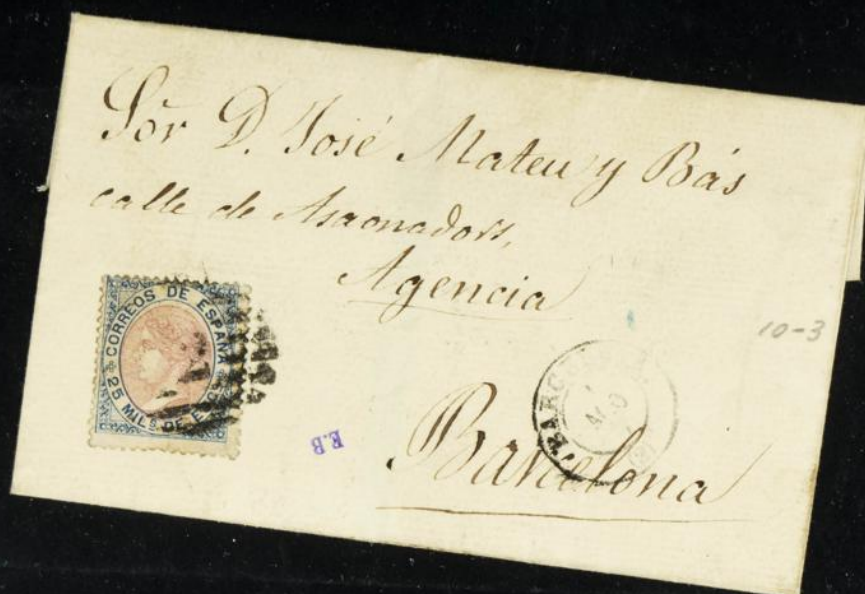 Sór D. José Mateu y Bás
calle de Asaonadors,
Agencia
Barcelona
CORREOS DE ESPAÑA
25 MILS. DE ESCO
E.B
10-3
AGO